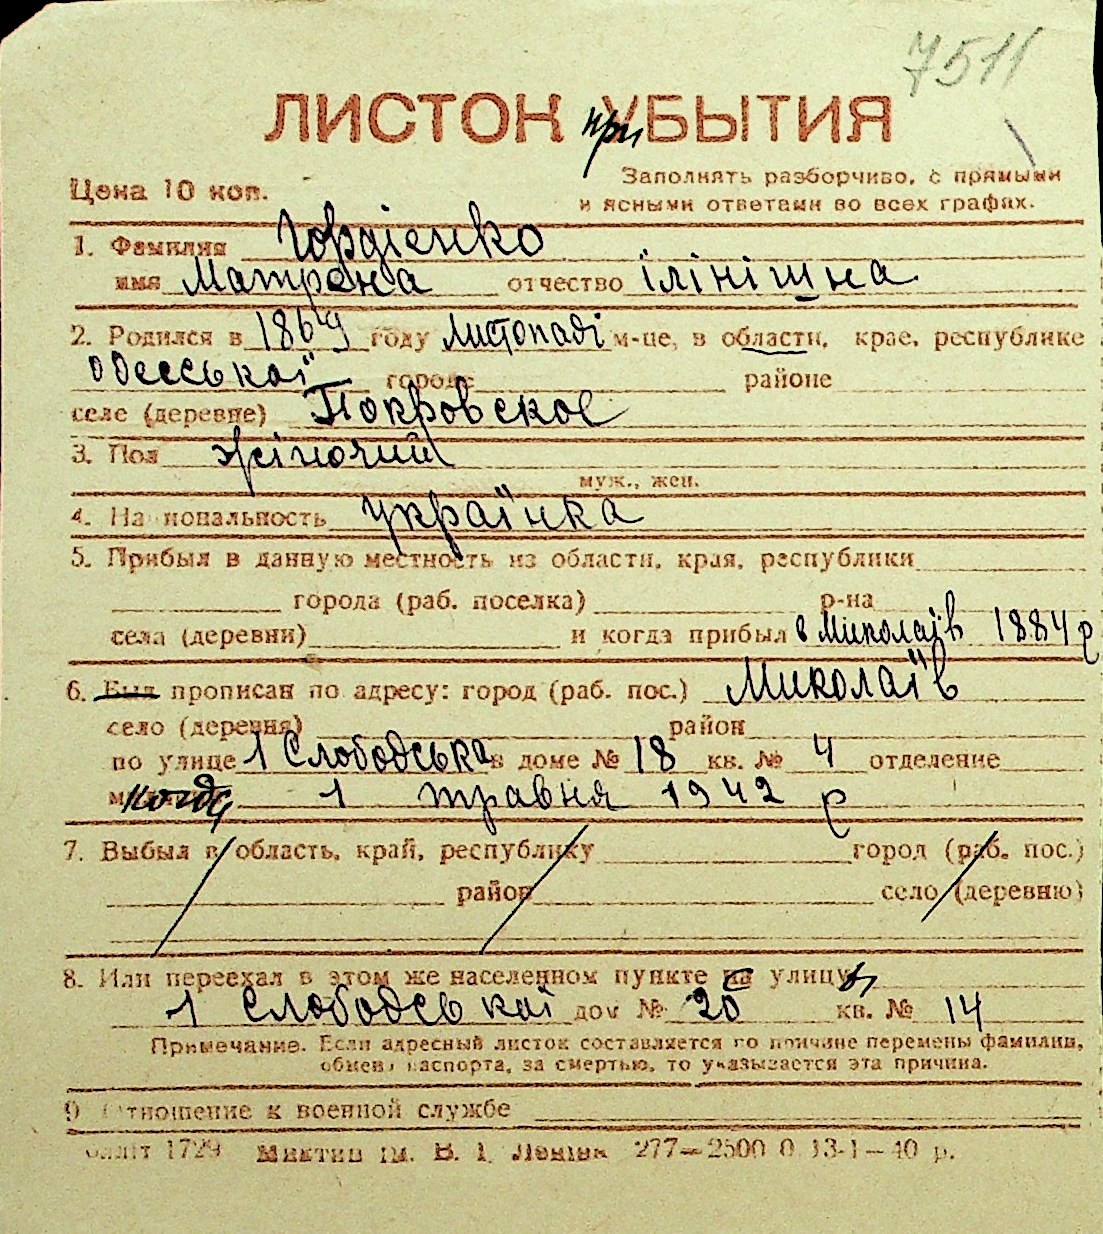 7511
ЛИСТОК при УБЫТИЯ
Цена 10 коп.
Заполнять разборчиво, с прямыми
и ясными ответами во всех графах.
1. Фамилия Гордієнко
имя Матрена отчество Ілінішна
2. Родился в 1869 году листопаді м-це, в области, крае, республике
Одеської городе районе
селе (деревне) Покровское
3. Пол жіночий
муж., жен.
4. Национальность українка
5. Прибыл в данную местность из области, края, республики
города (раб. поселка) р-на
села (деревни) и когда прибыл в Миколаїв 1884 р
6. Был прописан по адресу: город (раб. пос.) Миколаїв
село (деревня) район
по улице 1 Слободська в доме № 18 кв. № 4 отделение
когда 1 травня 1942 р
7. Выбыл в область, край, республику город (раб. пос.)
район село (деревню)
8. Или переехал в этом же населенном пункте на улицу
1 Слободської дом № 20 кв. № 14
Примечание. Если адресный листок составляется по причине перемены фамилии,
обмена паспорта, за смертью, то указывается эта причина.
9 Отношение к военной службе
1729 В. І. 277—2500 0 13-1—40 р.